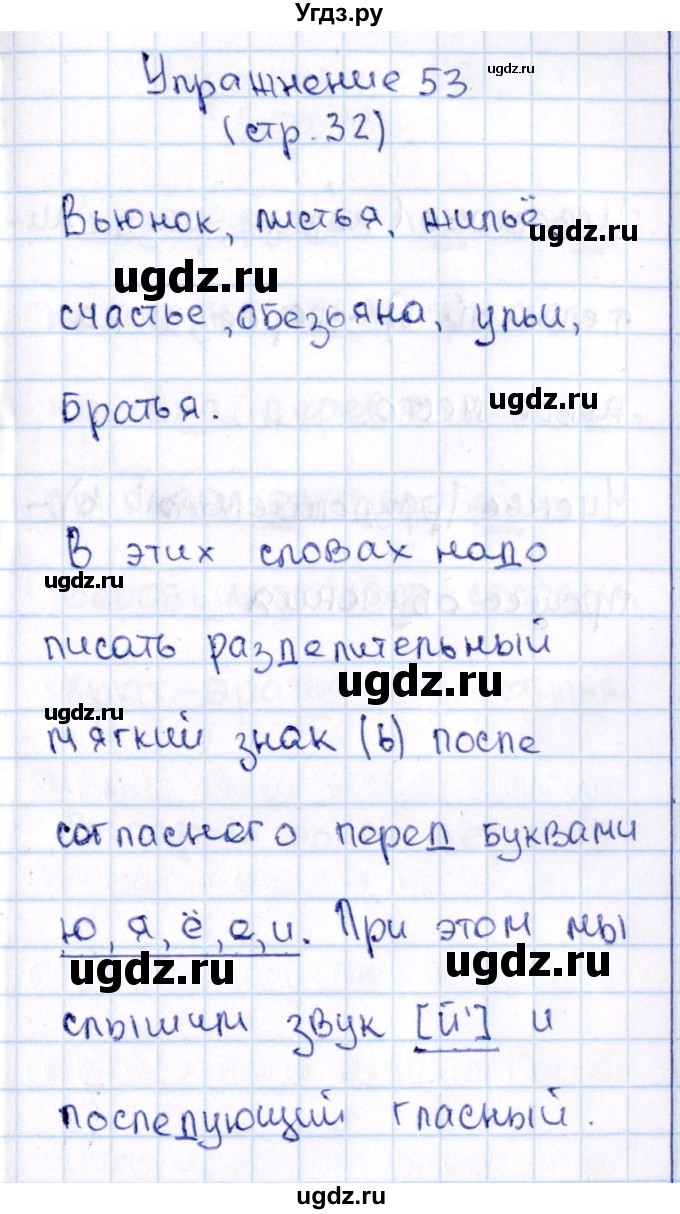 Угдз.ру
ugdz.ru
Упражнение 53
(стр. 32)
Вьюнок, листья, жильё,
ugdz.ru
ugdz.ru
счастье, обезьяна, ульи,
ugdz.ru
братья.
В этих словах надо
ugdz.ru
писать разделительный
ugdz.ru
ugdz.ru
мягкий знак (ь) после
согласного перед буквами
ю, я, ё, е, и. При этом мы
ugdz.ru
ugdz.ru
слышим звук [й'] и
последующий гласный.
ugdz.ru